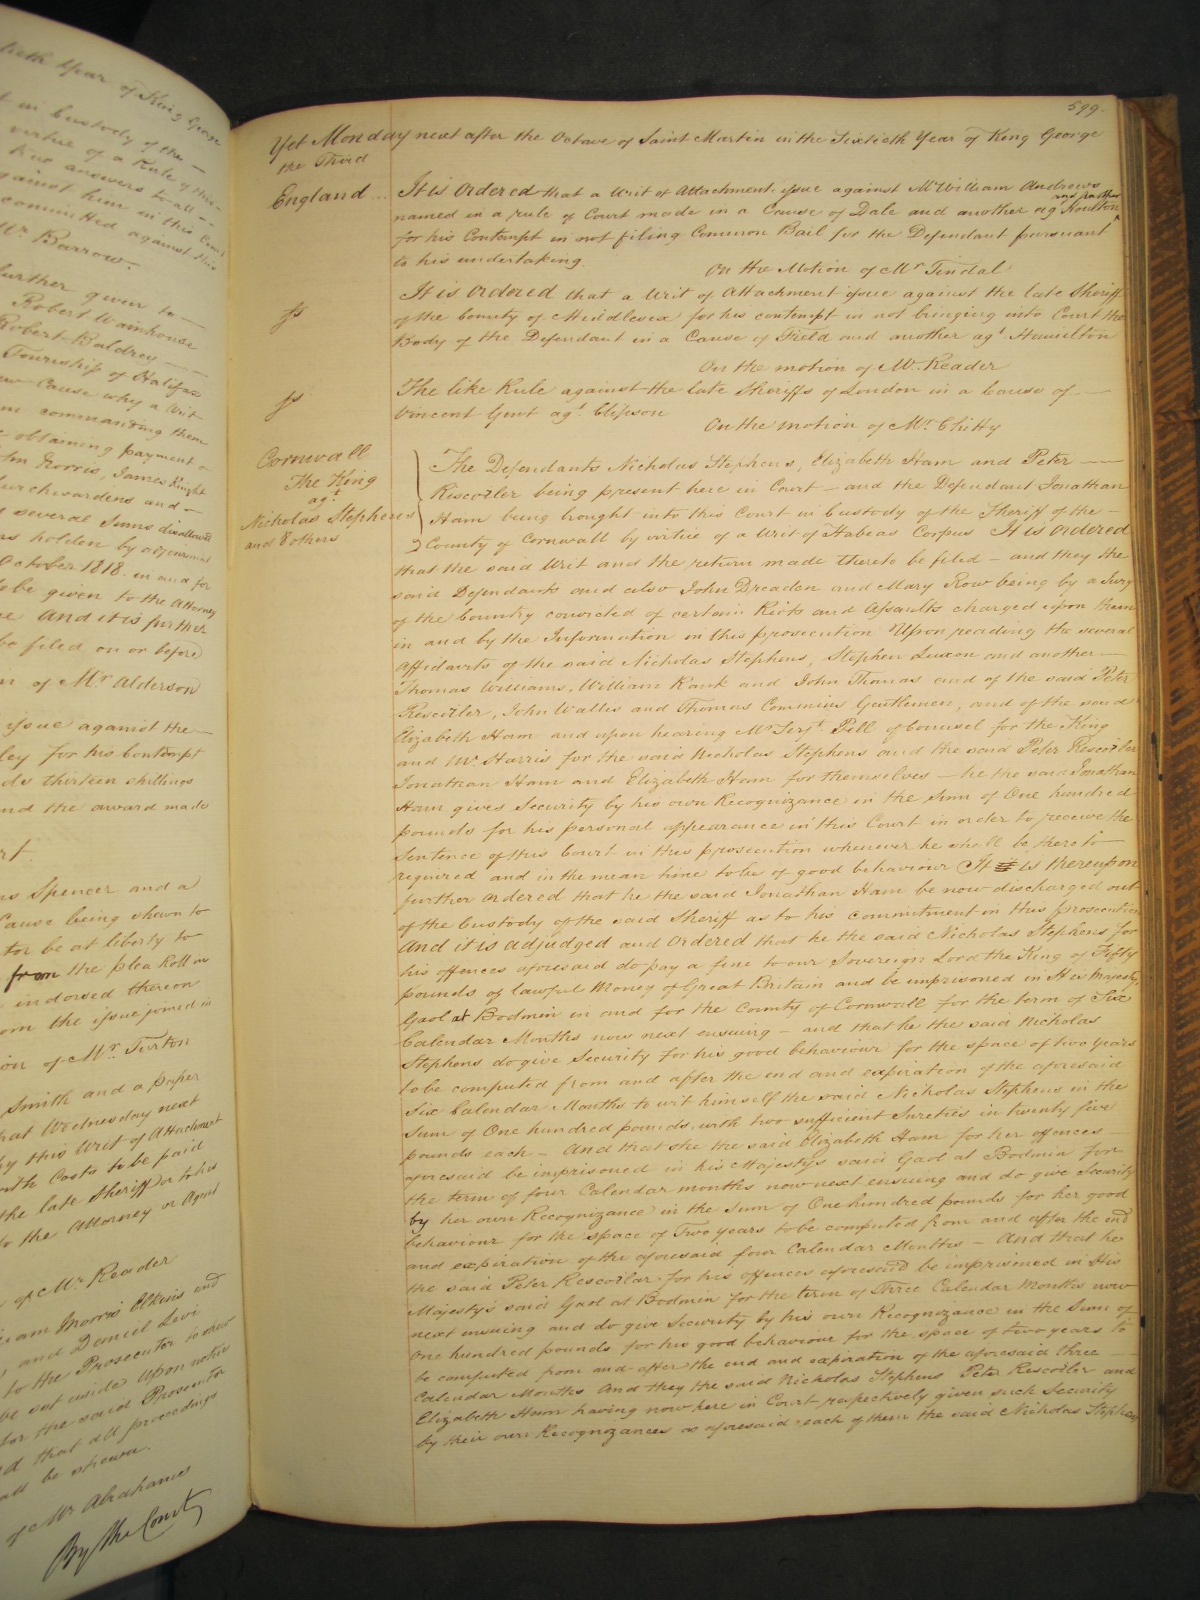 tieth Year of King George
t in Custody of the
virtue of a Rule of this
true answers to all
gainst him in this Court
committed against this
Mr Barrow.
further given to
Robert Wainhouse
Robert Baldrey
Township of Halifax
ew Cause why a Writ
m commanding them
obtaining payment
ohn Norris, James Knight
hurchwardens and
several Sums disallowed
ns holden by adjournment
October 1818. in and for
be given to the Attorney
And it is further
be filed on or before
n of Mr Alderson
issue against the
ley for his Contempt
ds thirteen shillings
nd the award made
rt.
ns Spencer and a
Cause being shewn to
tor be at liberty to
from the plea Roll or
indorsed thereon
om the issue joined in
ion of Mr. Turton
Smith and a paper
hat Wednesday next
by this Writ of Attachment
with Costs to be paid
the late Sheriff or to his
to the Attorney or Agent
of Mr Reader
iam Morris Elkins and
, and Daniel Levi
to the Prosecutor to shew
be set aside Upon notice
for the said Prosecutor
d that all proceedings
all be shewn.
of Mr Abrahams
By the Court
599.
Yet Monday next after the Octave of Saint Martin in the Sixtieth Year of King George
the Third
England ... It is Ordered that a Writ of Attachment issue against Mr William Andrews
named in a rule of Court made in a Cause of Dale and another agt Houlton
for his Contempt in not filing Common Bail for the Defendant pursuant
to his undertaking.
On the Motion of Mr Tindal
ss It is Ordered that a Writ of Attachment issue against the late Sheriff
of the County of Middlesex for his contempt in not bringing into Court the
Body of the Defendant in a Cause of Field and another agt. Hamilton
On the motion of Mr. Reader
ss The like Rule against the late Sheriffs of London in a Cause of
Vincent Gent agt. Clipson
On the motion of Mr. Chitty
Cornwall
The King
agt
Nicholas Stephens
and 8 others
The Defendants Nicholas Stephens, Elizabeth Ham and Peter
Rescorler being present here in Court – and the Defendant Jonathan
Ham being brought into this Court in Custody of the Sheriff of the
County of Cornwall by virtue of a Writ of Habeas Corpus It is Ordered
that the said Writ and the return made thereto be filed – and they the
said Defendants and also John Dreaden and Mary Row being by a Jury
of the Country convicted of certain Riots and Assaults charged upon them
in and by the Information in this prosecution Upon reading the several
Affidavits of the said Nicholas Stephens, Stephen Luxon and another
Thomas Williams, William Rank and John Thomas and of the said Peter
Rescorler, John Wallis and Thomas Commins Gentlemen, and of the said
Elizabeth Ham and upon hearing Mr Serjt. Pell of Counsel for the King
and Mr. Harris for the said Nicholas Stephens and the said Peter Rescorler
Jonathan Ham and Elizabeth Ham for themselves – he the said Jonathan
Ham gives Security by his own Recognizance in the Sum of One hundred
pounds for his personal appearance in this Court in order to receive the
Sentence of this Court in this prosecution whenever he shall be thereto
required and in the mean time to be of good behaviour It is thereupon
further Ordered that he the said Jonathan Ham be now discharged out
of the Custody of the said Sheriff as to his commitment in this prosecution
And it is adjudged and Ordered that he the said Nicholas Stephens for
his offences aforesaid do pay a fine to our Sovereign Lord the King of Fifty
pounds of lawful Money of Great Britain and be imprisoned in His Majestys
Gaol at Bodmin in and for the County of Cornwall for the term of Six
Calendar Months now next ensuing – and that he the said Nicholas
Stephens do give Security for his good behaviour for the space of two years
to be computed from and after the end and expiration of the aforesaid
Six Calendar Months to wit himself the said Nicholas Stephens in the
Sum of One hundred pounds, with two sufficient Sureties in twenty five
pounds each – And that she the said Elizabeth Ham for her offences
aforesaid be imprisoned in his Majestys said Gaol at Bodmin for
the term of four Calendar months now next ensuing and do give Security
by her own Recognizance in the Sum of One hundred pounds for her good
behaviour for the space of Two years to be computed from and after the end
and expiration of the aforesaid four Calendar Months – And that he
the said Peter Rescorlar for his offences aforesaid be imprisoned in His
Majestys said Gaol at Bodmin for the term of Three Calendar Months now
next ensuing and do give Security by his own Recognizance in the Sum of
One hundred pounds for his good behaviour for the space of two years to
be computed from and after the end and expiration of the aforesaid three
Calendar Months And they the said Nicholas Stephens Peter Rescorler and
Elizabeth Ham having now here in Court respectively given such Security
by their own Recognizances as aforesaid each of them the said Nicholas Stephens